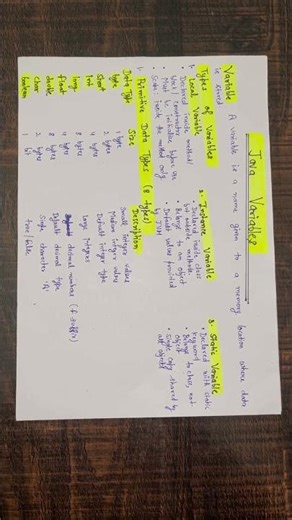 Java Variables
Variable A variable is a name given to a memory location where data
is stored
Types of Variables
1. Local Variable
• Declared inside method/
block/constructor
• Must be initialize before use
• Scope inside the method only.
2. Instance Variable
• Declared inside class
but outside methods
• Belongs to an object
• Default values provided
3. Static Variable
• Declared with static
keyword
• Belongs to class, not
object
• Single copy shared by
all objects
1. Primitive Data Types (8 types)
Data Type Size Description
byte 1 byte Small integer values
short 2 bytes Medium integer value
int 4 bytes Default integer type
long 8 bytes Large Integers
float 4 bytes decimal numbers
double 8 bytes Default decimal type
char 2 bytes Single character 'A'
boolean 1 bit true/false